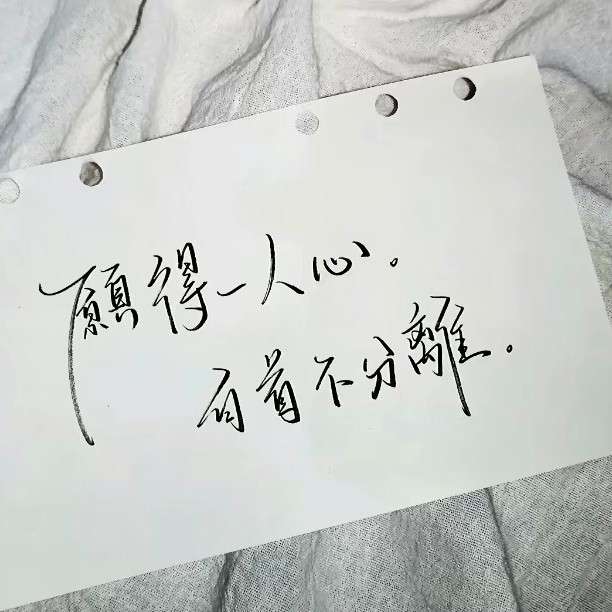 願得一人心。
百首不分離。